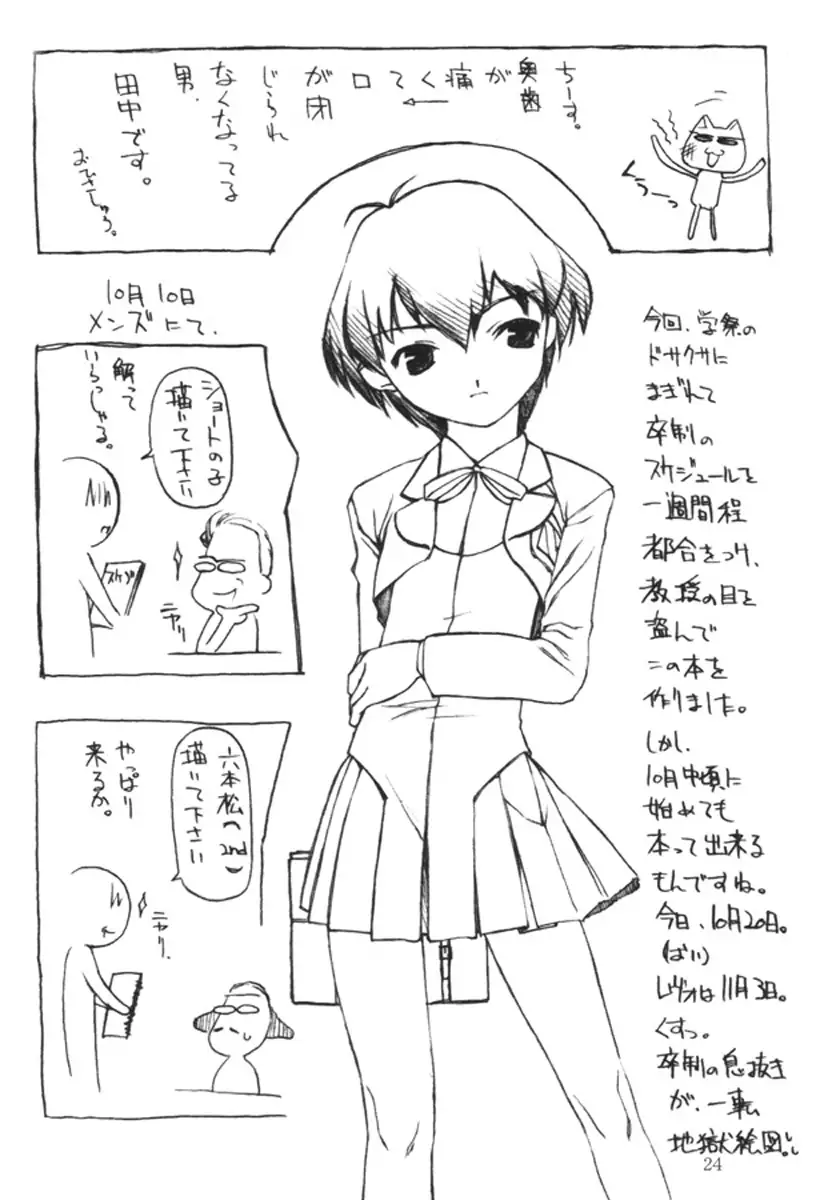 ちーす。
奥歯
が痛くて口
が閉
じられ
なくなってる
男.
田中です。
おひさしゅう。
くぅーっ
10月10日
メンズにて.
ショートの子
描いて下さい
解って
いらっしゃる。
スケブ
ニヤリ
六本松 2nd
描いて下さい
やっぱり
来るか。
ニヤリ.
今回、学祭の
ドサクサに
まぎれて
卒制の
スケジュールを
一週間程
都合をつけ、
教授の目を
盗んで
この本を
作りました。
しかし、
10月中頃に
始めても
本って出来る
もんですね。
今日、10月20日。
レヴォは11月3日。
くすっ。
卒制の息抜き
が、一転
地獄絵図。
24